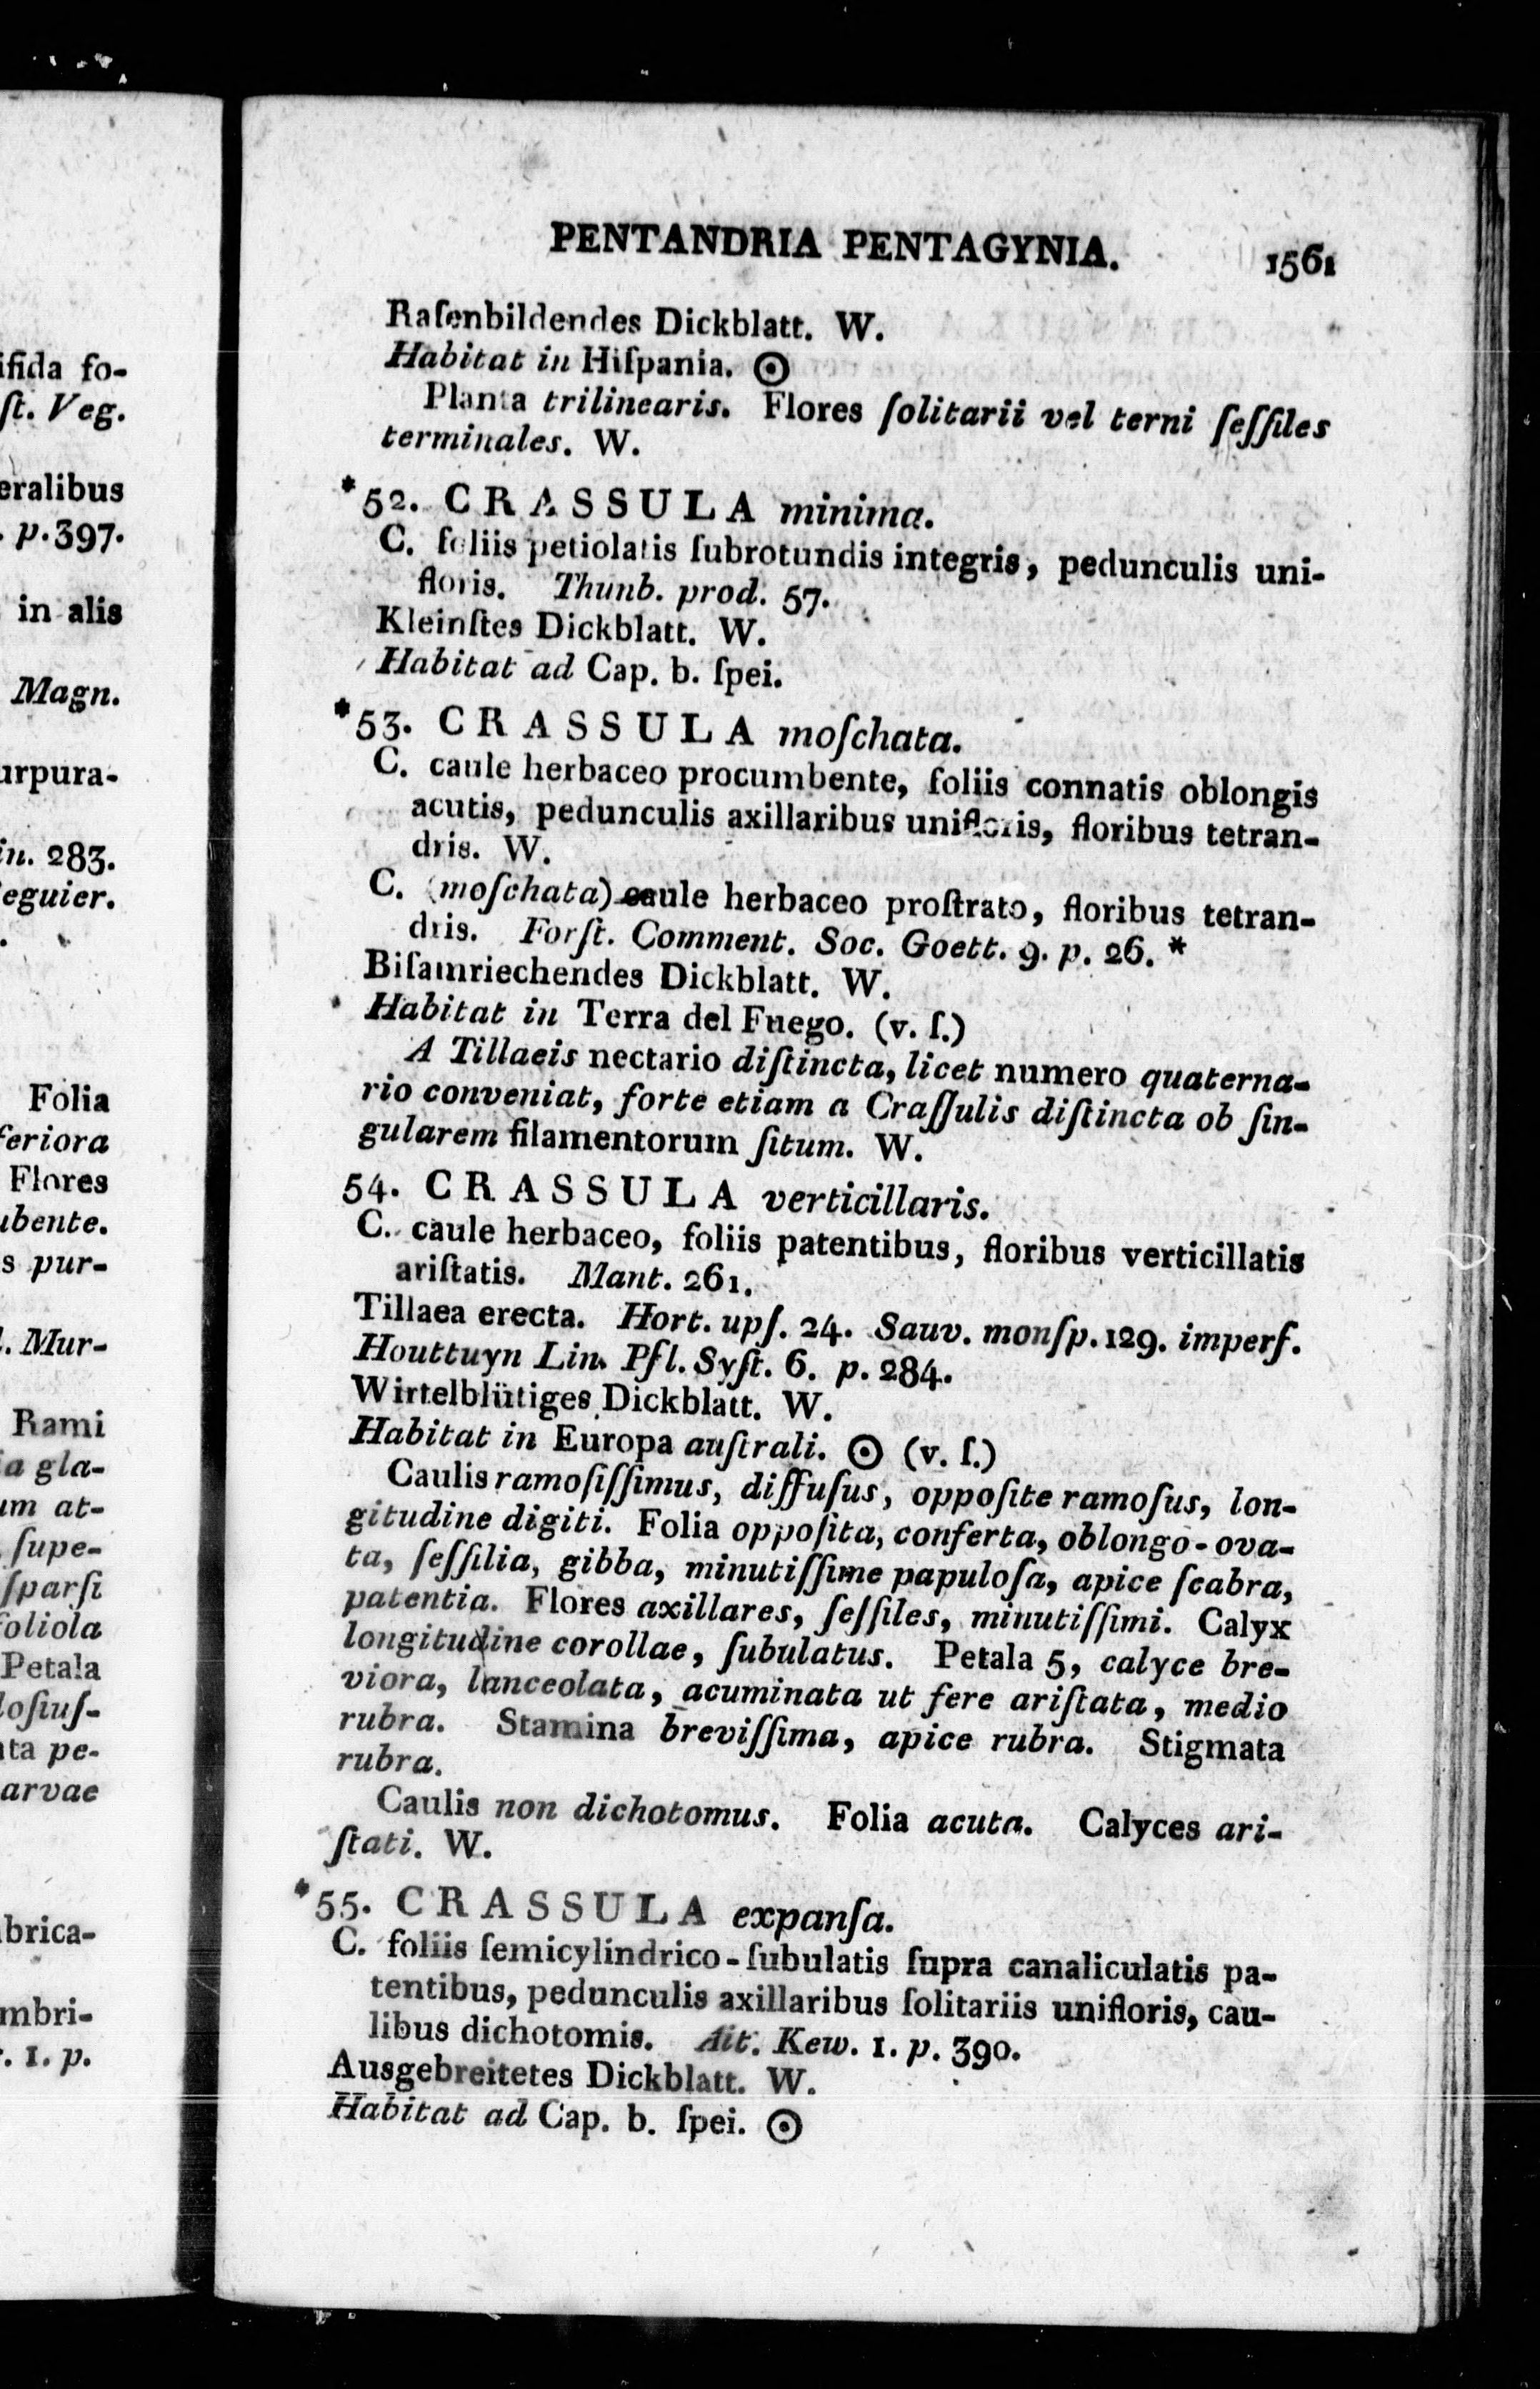 ifida fo-
ſt. Veg.
eralibus
. p. 397.
in alis
Magn.
urpura-
in. 283.
eguier.
Folia
feriora
Flores
ubente.
s pur-
l. Mur-
Rami
a gla-
um at-
ſupe-
ſparſi
foliola
Petala
loſiuſ-
ata pe-
arvae
brica-
mbri-
. 1. p.
PENTANDRIA PENTAGYNIA. 1561
Raſenbildendes Dickblatt. W.
Habitat in Hiſpania. ☉
Planta trilinearis. Flores ſolitarii vel terni ſeſſiles
terminales. W.
*52. CRASSULA minima.
C. foliis petiolatis ſubrotundis integris, pedunculis uni-
floris. Thunb. prod. 57.
Kleinſtes Dickblatt. W.
Habitat ad Cap. b. ſpei.
*53. CRASSULA moſchata.
C. caule herbaceo procumbente, foliis connatis oblongis
acutis, pedunculis axillaribus unifloris, floribus tetran-
dris. W.
C. (moſchata) caule herbaceo proſtrato, floribus tetran-
dris. Forſt. Comment. Soc. Goett. 9. p. 26. *
Biſamriechendes Dickblatt. W.
Habitat in Terra del Fuego. (v. ſ.)
A Tillaeis nectario diſtincta, licet numero quaterna-
rio conveniat, forte etiam a Craſſulis diſtincta ob ſin-
gularem filamentorum ſitum. W.
54. CRASSULA verticillaris.
C. caule herbaceo, foliis patentibus, floribus verticillatis
ariſtatis. Mant. 261.
Tillaea erecta. Hort. upſ. 24. Sauv. monſp. 129. imperf.
Houttuyn Lin. Pfl. Syſt. 6. p. 284.
Wirtelblütiges Dickblatt. W.
Habitat in Europa auſtrali. ☉ (v. ſ.)
Caulis ramoſiſſimus, diffuſus, oppoſite ramoſus, lon-
gitudine digiti. Folia oppoſita, conferta, oblongo-ova-
ta, ſeſſilia, gibba, minutiſſime papuloſa, apice ſcabra,
patentia. Flores axillares, ſeſſiles, minutiſſimi. Calyx
longitudine corollae, ſubulatus. Petala 5, calyce bre-
viora, lanceolata, acuminata ut fere ariſtata, medio
rubra. Stamina breviſſima, apice rubra. Stigmata
rubra.
Caulis non dichotomus. Folia acuta. Calyces ari-
ſtati. W.
*55. CRASSULA expanſa.
C. foliis ſemicylindrico-ſubulatis ſupra canaliculatis pa-
tentibus, pedunculis axillaribus ſolitariis unifloris, cau-
libus dichotomis. Ait. Kew. 1. p. 390.
Ausgebreitetes Dickblatt. W.
Habitat ad Cap. b. ſpei. ☉